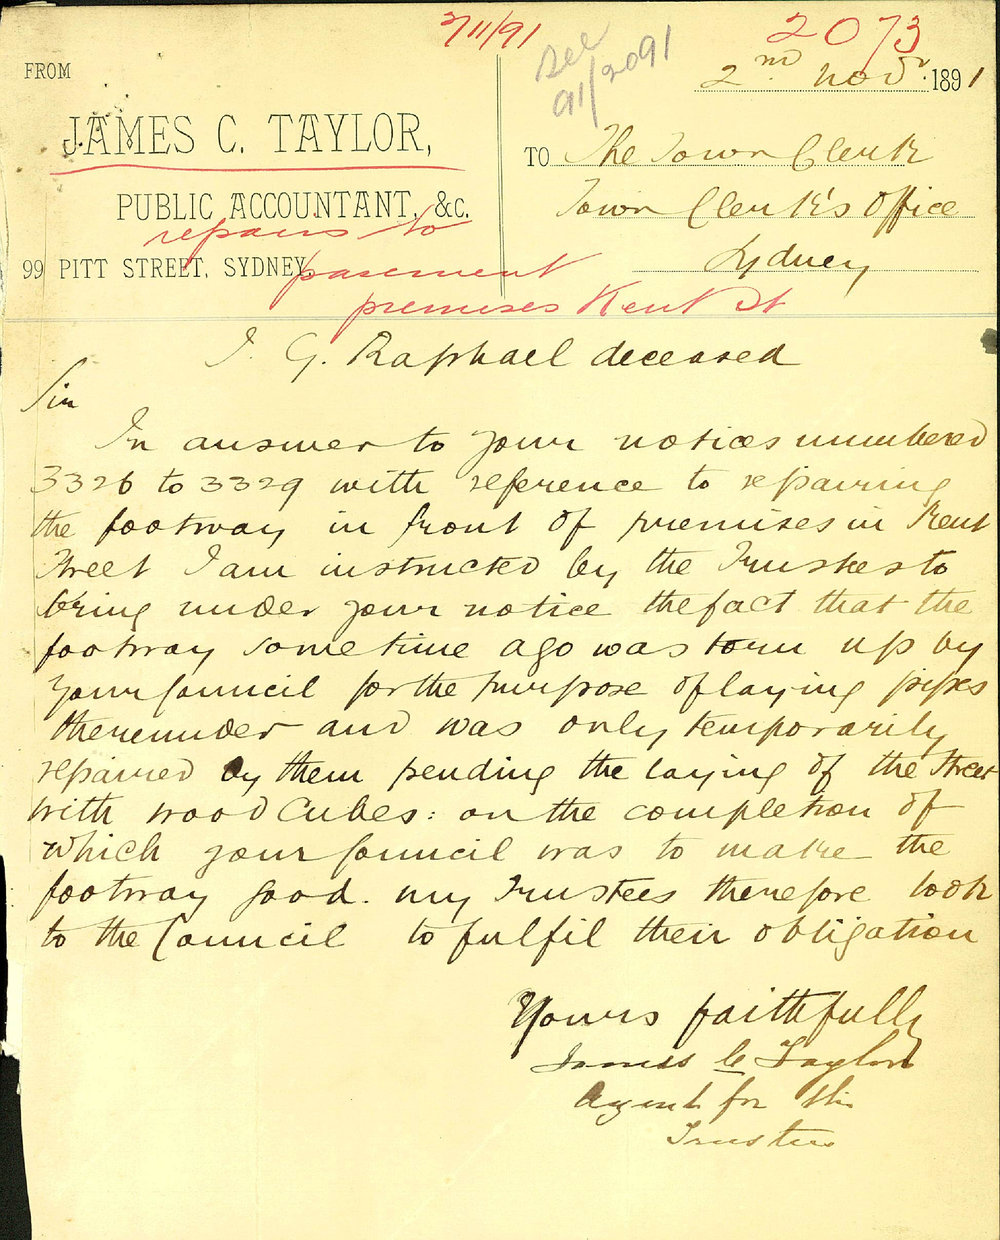 2/11/91
see
91/2091
2073
2nd Novr. 1891
FROM
JAMES C. TAYLOR,
PUBLIC ACCOUNTANT, &c.
99 PITT STREET, SYDNEY.
TO The Town Clerk
Town Clerk's Office
Sydney
repairs to
pavement
premises Kent St
J. G. Raphael deceased
Sir
In answer to your notices numbered
3326 to 3329 with reference to repairing
the footway in front of premises in Kent
Street I am instructed by the Trustees to
bring under your notice the fact that the
footway sometime ago was torn up by
your Council for the purpose of laying pipes
thereunder and was only temporarily
repaired by them pending the laying of the Street
with wood cubes: on the completion of
which your Council was to make the
footway good. my Trustees therefore look
to the Council to fulfil their obligation
Yours faithfully
James C Taylor
Agent for the
Trustees